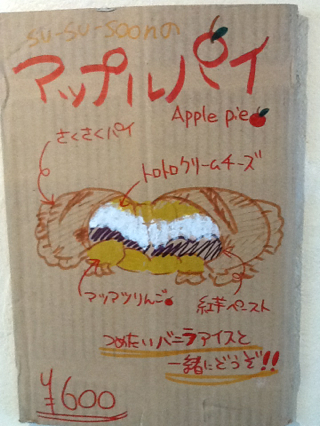 su-su-soonの
アップルパイ
Apple pie
さくさくパイ
トロトロクリームチーズ
アツアツりんご
紅芋ペースト
つめたいバニラアイスと
一緒にどうぞ!!
¥600